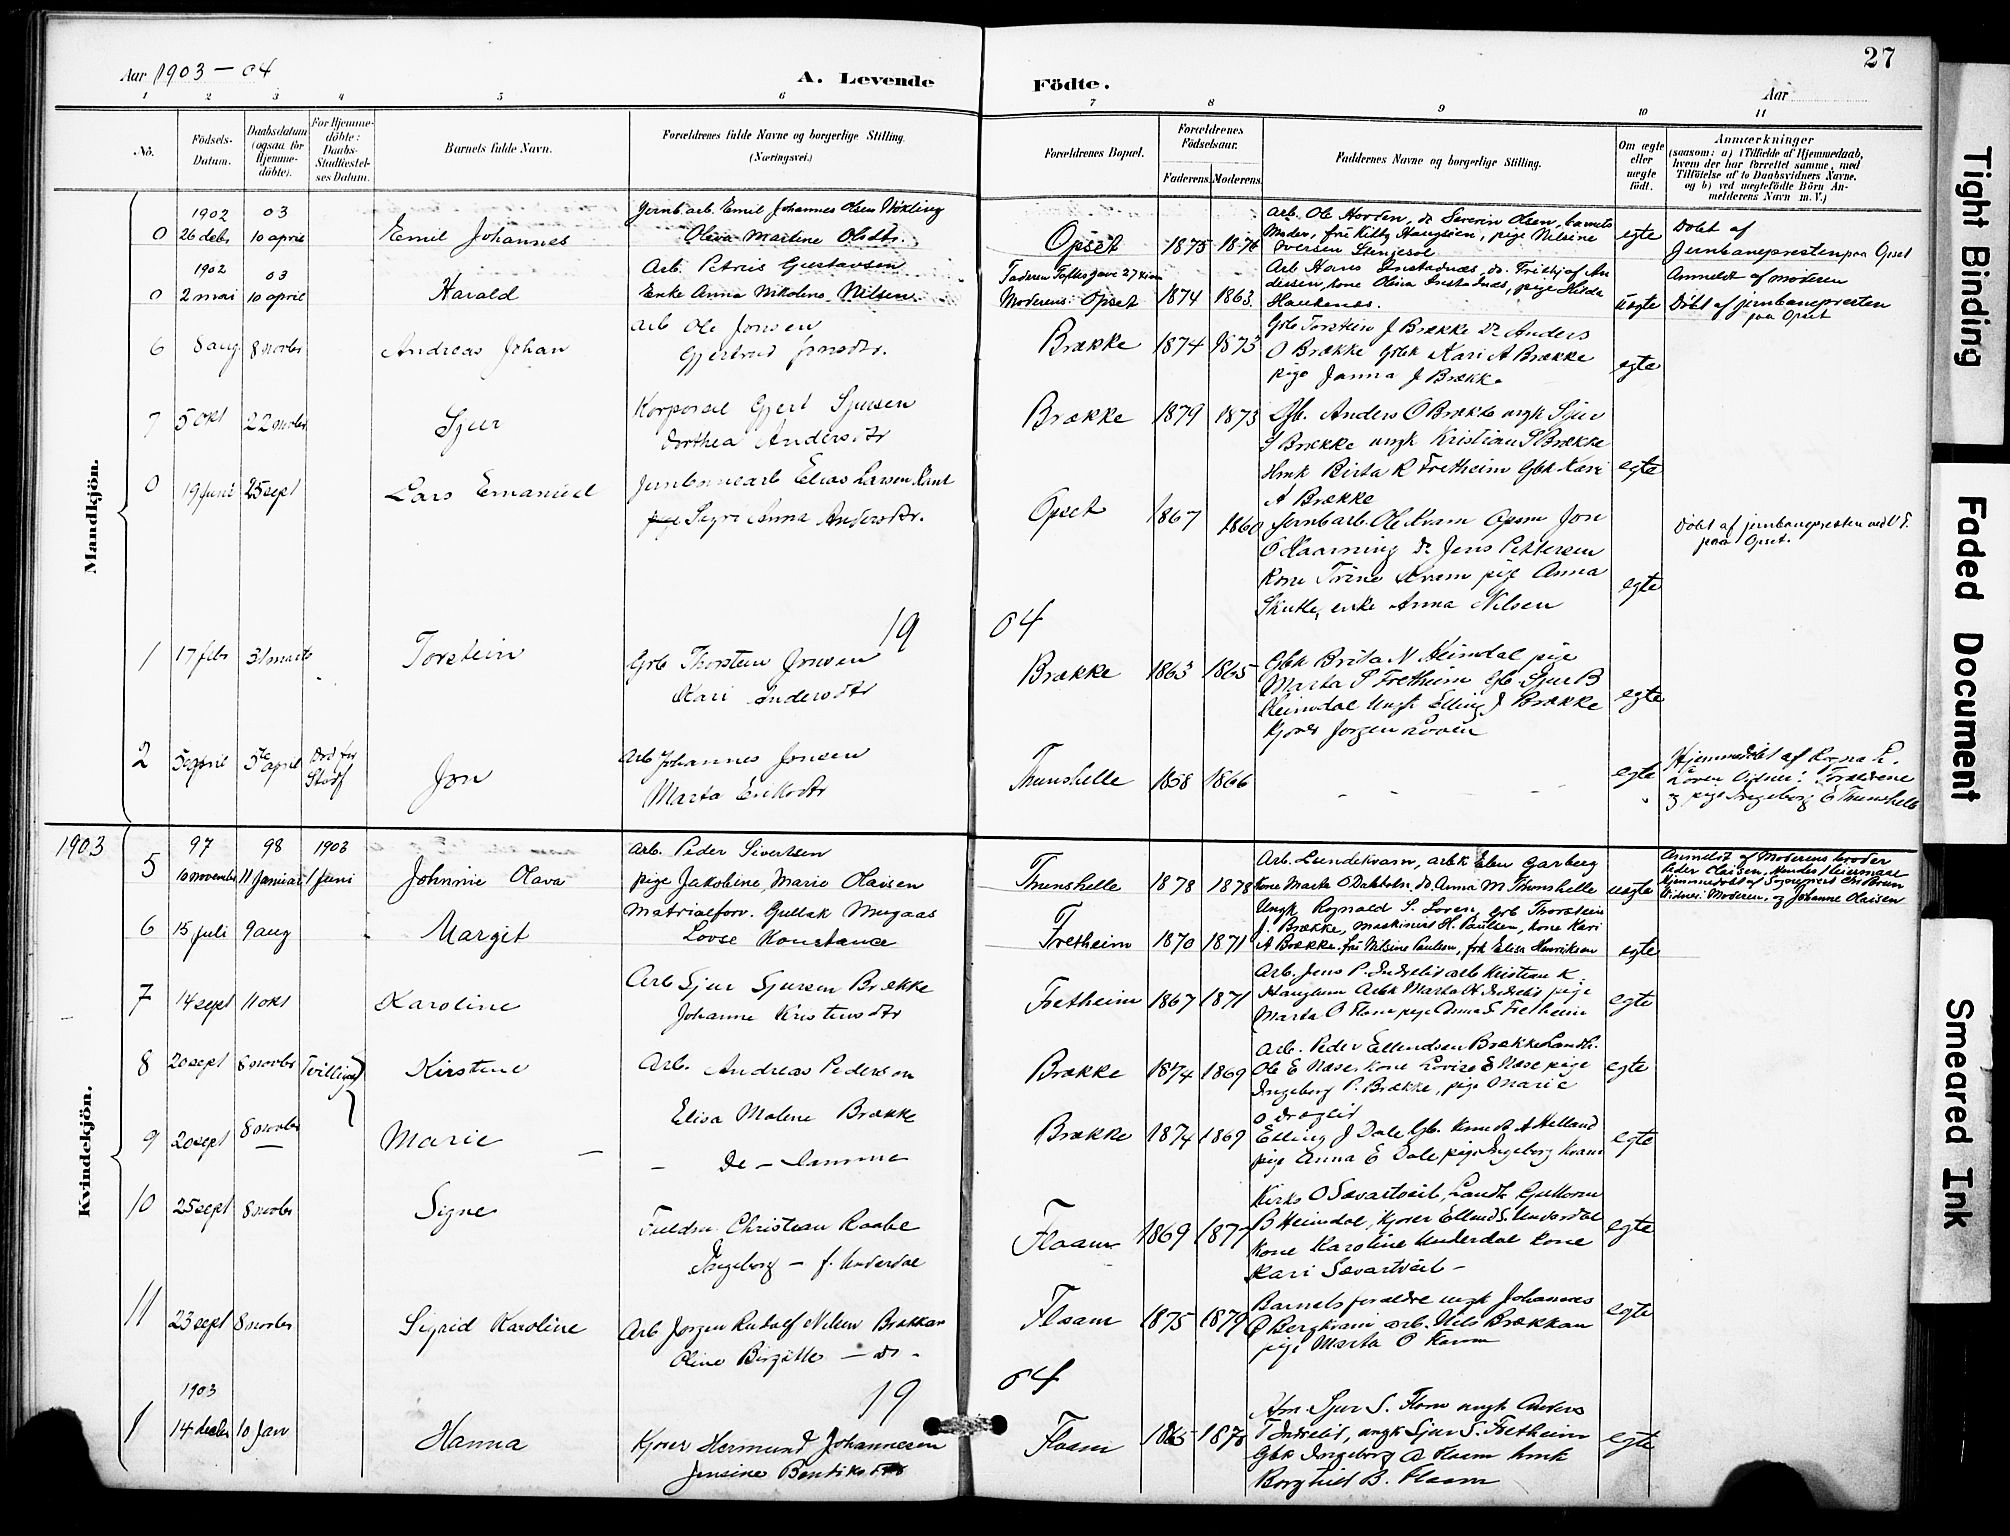 27
Aar 1903 – 04
A. Levende
Födte.
Aar
1 2 3 4 5 6 7 8 9 10 11
No.
Födsels-Datum.
Daabsdatum (ogsaa for Hjemmedöbte).
For Hjemmedöbte: Daabs-Stadfæstelses Datum.
Barnets fulde Navn.
Forældrenes fulde Navne og borgerlige Stilling. (Næringsvei.)
Forældrenes Bopæl.
Forældrenes Födselsaar.
Faderens. Moderens.
Faddernes Navne og borgerlige Stilling.
Om ægte eller uægte födt.
Anmærkninger
(saasom: a) i Tilfælde af Hjemmedaab, hvem der har forrettet samme, med Tilföielse af to Daabsvidners Navne, og b) ved uegtefödte Börn Anmelderens Navn m. V.)
Mandkjön.
0 1902 26 debr 03 10 april Emil Johannes
Jernb.arb. Emil Johannes Olsen
Oliva Martine Olsdtr.
Opset 1875 1876
Arb. Ole Hovden, do Severin Olsen, barnets
Moder, frü Kitty Haugsöen, pige Nilsine
egte
Döbt af
Jernbanepresten paa Opset
0 1902 2 mai 03 10 april Harald
Arb. Petrus Gustavsen
Enke Anna Nikoline Nilsen
Moderens: Opset 1874 1863
uægte
Anmeldt af moderen
Döbt af jernbanepresten
paa Opset
6 8 aug 8 novbr Andreas Johan
Arb Ole Jonsen
Gjertrud Jensdtr.
Brække 1874 1873
Grb Torstein J Brække do Anders
O Brække Gbk Kari A Brække
pige Janna J Brække
egte
7 5 okt 22 novbr Sjur
Korporal Gjert Sjursen
Dorthea Andersdtr
Brække 1879 1873
Gb. Anders O Brække ungk Sjur
S Brække ungk Kristian S Brække
Hmk Birta R Fretheim Gbk Kari
A Brække
egte
0 19 juni 25 sept Lars Emanuel
Jernbanearb Elias Larsen
Sigri Anna Andersdtr.
Opset 1867 1860
Jernbarb. Ole Kvam Opsm Jon
O Kaarning do Jens Pettersen
Kone Trine Kvam pige Anna
Skutle, enke Anna Nilsen
egte
Döbt af jernbanepresten
paa Opset.
19 04
1 17 febr 31 marts Torstein
Grb Thorstein Jonsen
Kari Andersdtr
Brække 1863 1865
Gbk Brita N Heimdal pige
Marta S Fretheim Gb. Sjur B
Heimdal Ungk Elling J Brække
Kjører Jørgen Loven
egte
2 5 april 5te april Jon
Arb Johannes Jonsen
Marta Eriksdtr
Thunshelle 1858 1866
egte
Hjemmedöbt af Ragna L.
Loven Vidner: Forældrene
og pige Ingeborg E Thunshelle
Kvindekjön.
1903
5 97 10 november 98 11 januar 1903 1 juni Johnnie Olava
Arb. Peder Sivertsen
pige Jakobine Marie Olaisen
Thunshelle 1878 1878
Arb. Lundekvam, arbk Elen Garberg
Kone Marta O Dakholn, do Anna M Thunshelle
uægte
Anmeldt af Moderens broder
Peder Olaisen,
Vidner: Moderen, og Johanne Olaisen
6 15 juli 9 aug Margit
Matrialforv. Gullak Mugaas
Lovse Konstance
Fretheim 1870 1871
Ungk Rognald S. Loven, Grb Thorstein
J. Brække, maskinist H. Paulsen, Kone Kari
A Brække. frü Nilsine Paulsen, frk Elisa Henriksen
egte
7 14 sept 11 okt Karoline
Arb Sjur Sjursen Brække
Johanne Kristensdtr
Fretheim 1867 1871
Arb. Jens P. Indrelid arb Kristian K.
Haugtun Arbk Marta H Indrelid pige
Marta O Flaam pige Anna S Fretheim
egte
8 20 sept 8 novbr Tvillinger Kirstine
Arb. Andreas Pedersen
Elisa Malene Brække
Brække 1874 1869
Arb. Peder Ellendsen Brække Landh.
Ole E Næse Kone Lovise E Næse pige
Ingeborg P. Brække, pige Marie
O Droglid
egte
9 20 sept 8 novbr – Marie –
– De – samme
Brække 1874 1869
Elling J Dale Gb. Knud A Helland
pige Anna E Dale, pige Ingeborg Kvam
egte
10 25 sept 8 novbr Signe
Fuldm. Christian Raabe
Ingeborg – f. Underdal
Flaam 1869 1877
Kirks O Sævartveit, Landh Guttorm
B Heimdal, Kjører Ellend S. Underdal
Kone Karoline Underdal Kone
Kari Sævartveit –
egte
11 23 sept 8 novbr Sigrid Karoline
Arb Jorgen Rudolf Nilsen Brækkan
Oline Birgitte – do –
Flaam 1875 1879
Barnets forældre ungk Johannes
O Bergkvam arb. Nils Brækkan
pige Marta O Kvam
egte
19 04
1 1903 14 decbr 10 Jan Hanna
Kjører Hermund Johannesen
Jensine Bendiksdtr
Flaam 1865 1878
Hm Sjur S. Flam ungk Anders
T Indrelid, ungk Sjur S. Fretheim
Gbk Ingeborg A Flaam hmk
Borghild B. Flaam
egte
Tight Binding
Faded Document
Smeared Ink